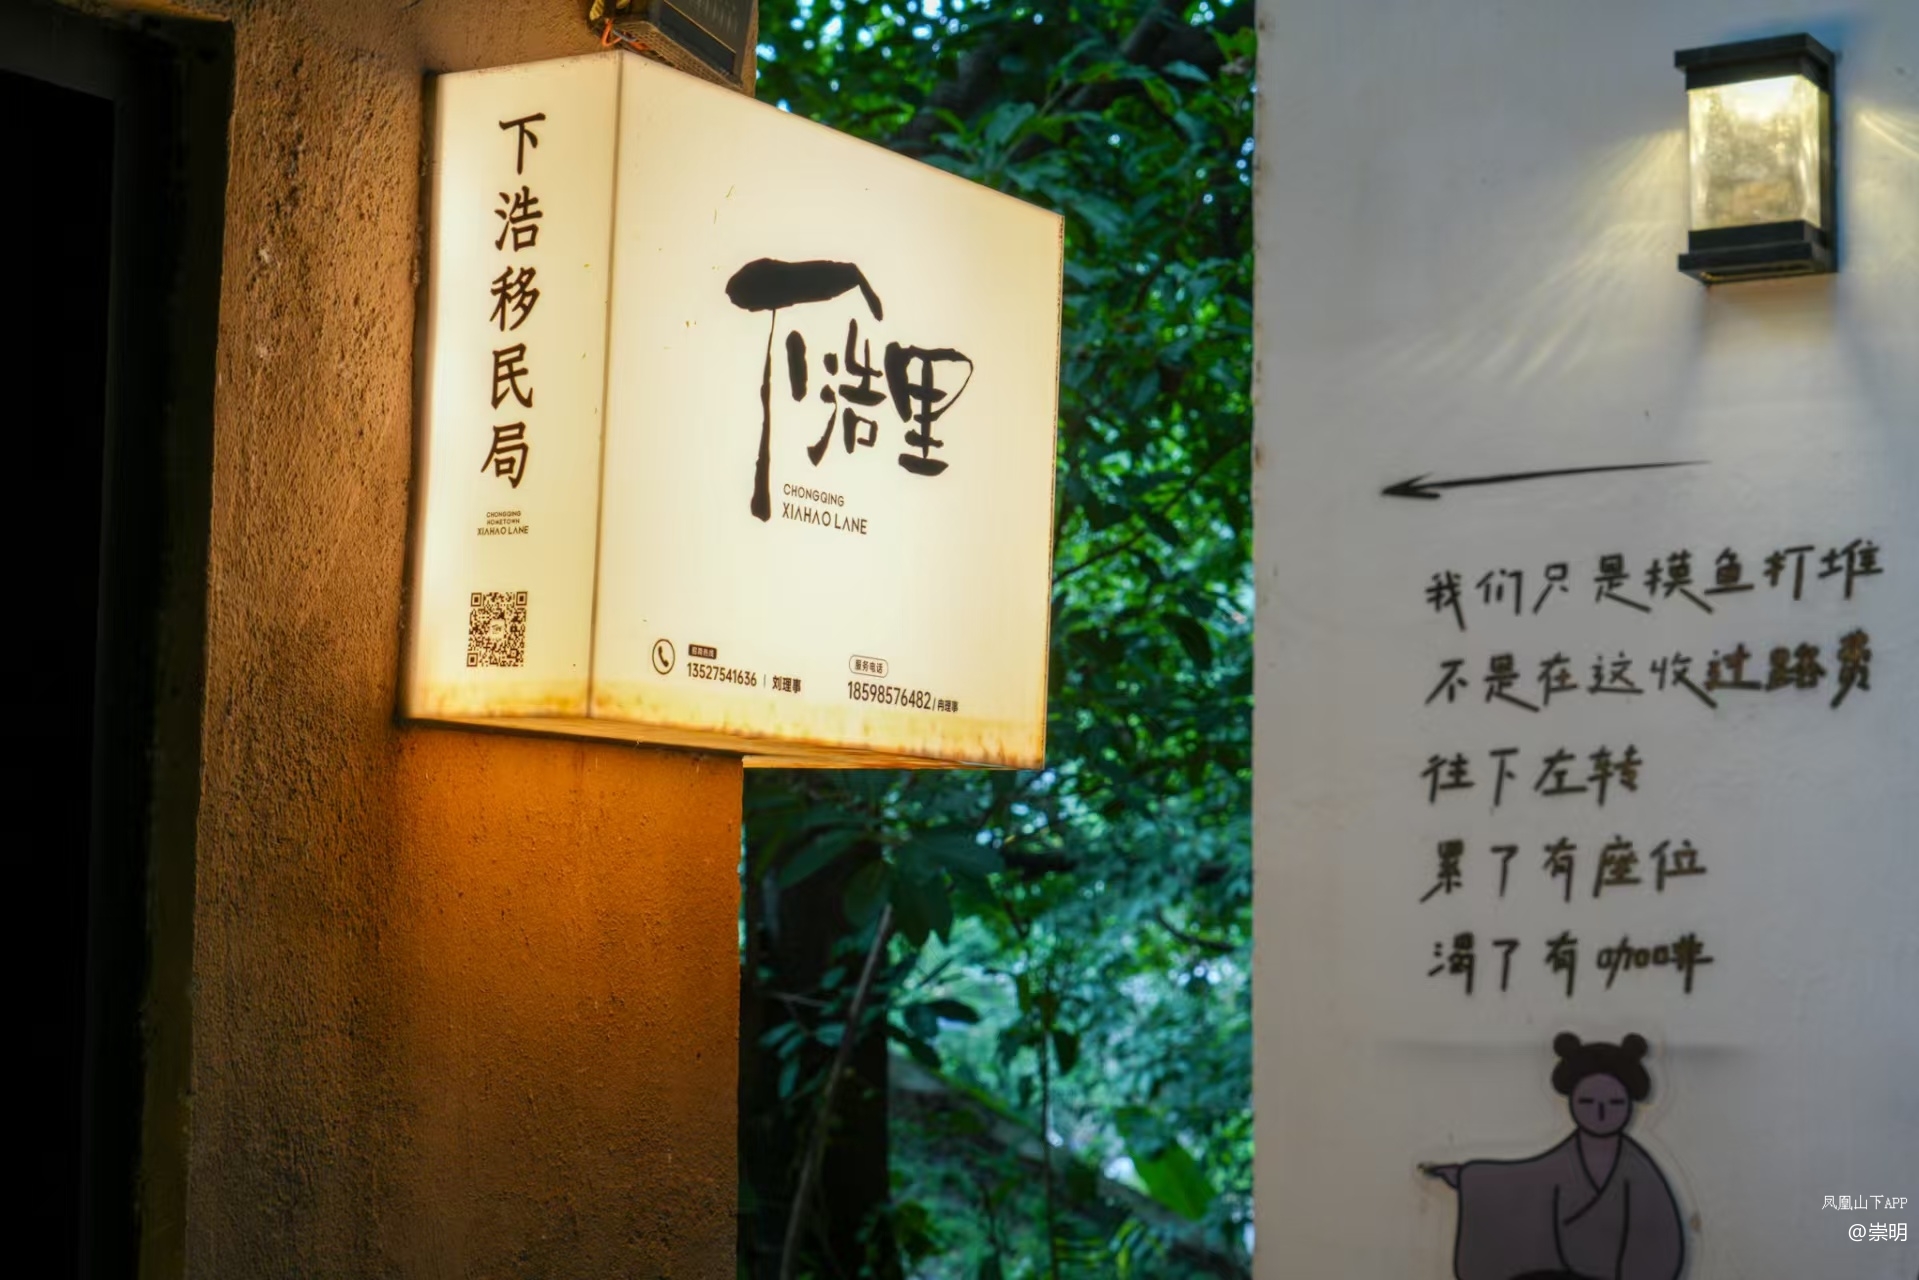 下浩移民局
CHONGQING
HOMETOWN
XIAHAO LANE
下浩里
CHONGQING
XIAHAO LANE
招商热线
13527541636 | 刘理事
服务电话
18598576482 | 冉理事
我们只是摸鱼打堆
不是在这收过路费
往下左转
累了有座位
渴了有咖啡
凤凰山下APP
@崇明